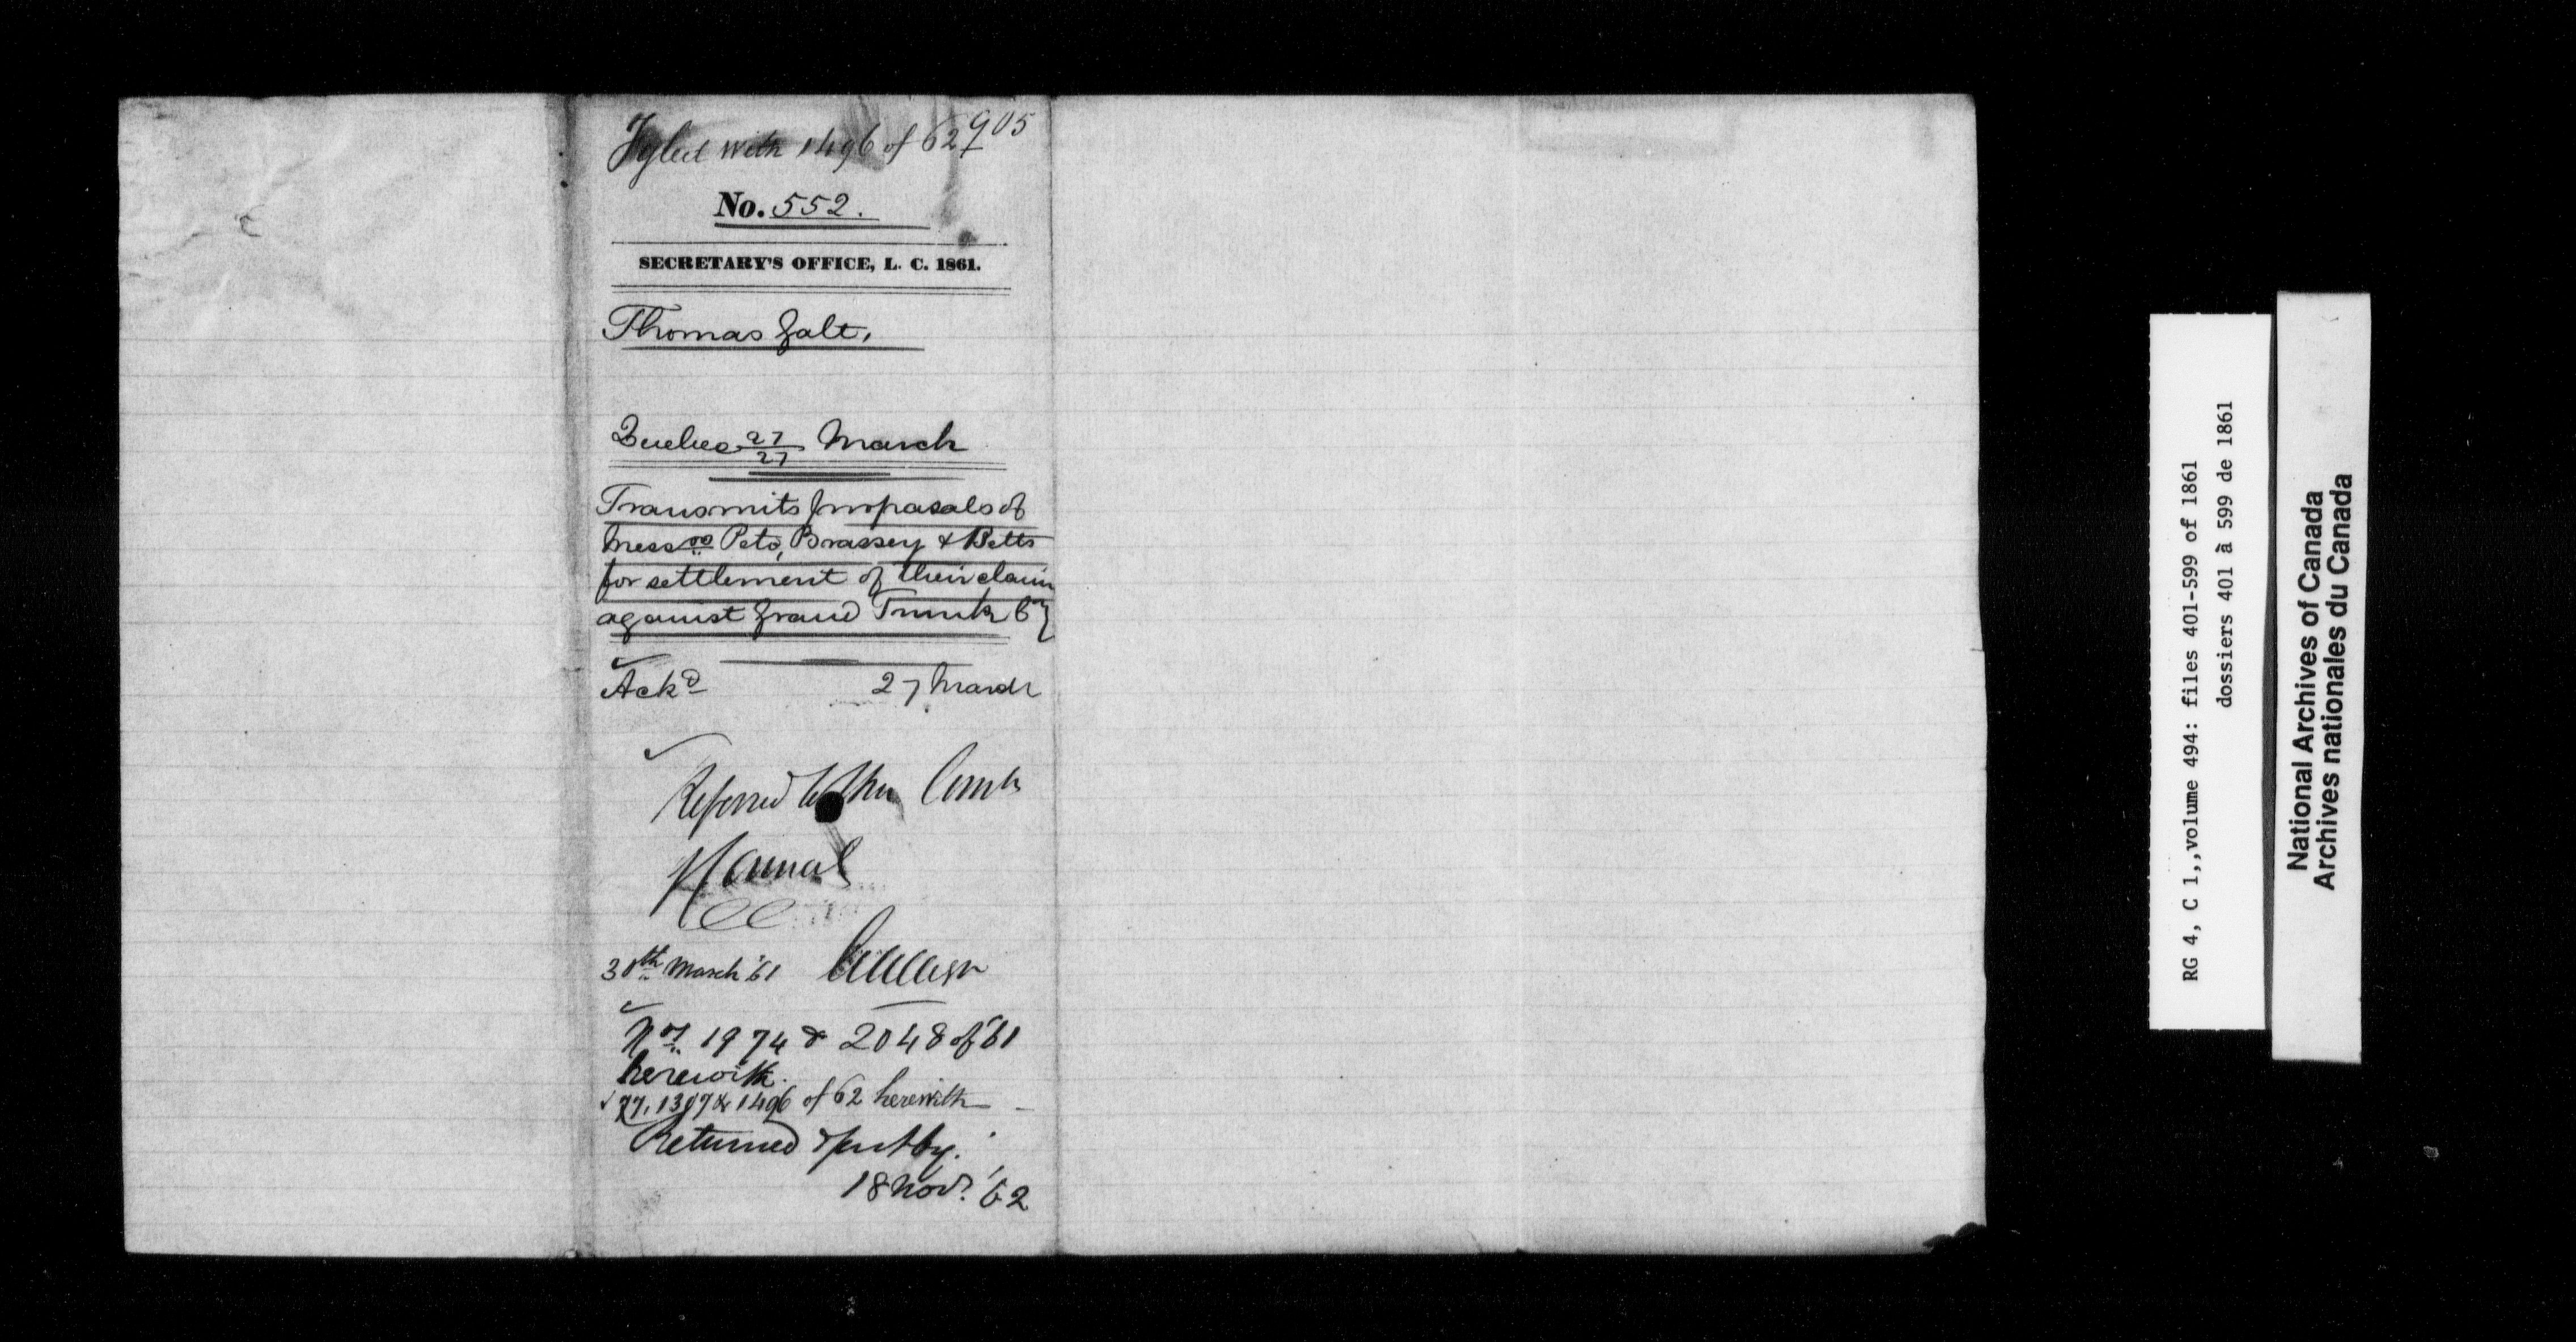 Fyled with 1496 of 62
905
No. 552.
SECRETARY'S OFFICE, L. C. 1861.
Thomas Galt,
Quebec 27/27 March
Transmits proposals of
Mess rs Peto, Brassey & Betts
for settlement of their claim
against Grand Trunk Coy
Ackd 27 March
Referred to the
30th March '61
Nos 1974 & 2048 of '61
herewith.
77, 1397 & 1496 of 62 herewith
Returned & put by.
18 Novr. '62
RG 4, C 1,,volume 494: files 401-599 of 1861
dossiers 401 à 599 de 1861
National Archives of Canada
Archives nationales du Canada